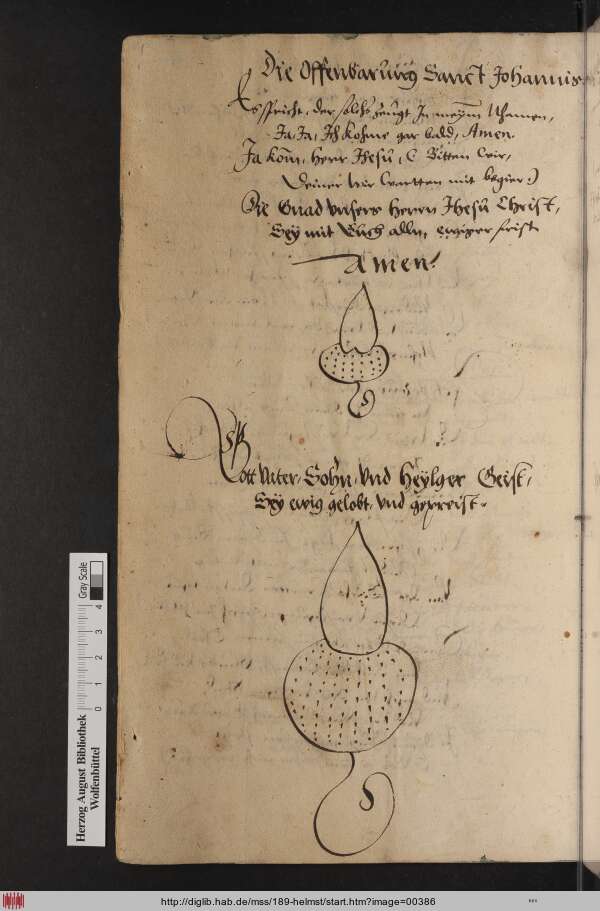 Die Offenbarung Sanct Johannis
Es spricht, der solchs zeugt In meym Nhamen,
Ja, Ja, Ich kohme gar bald, Amen.
Ja kom, Herr Jhesu, (Bitten wir,
Deiner wir wartten mit begier:)
Die Gnad Unsers Herrn Jhesu Christ,
Sey mit Euch alln, ewiger frist
Amen.
Gott Vater, Sohn, und Heylger Geist,
Sey ewig gelobt, und gepreist.
Herzog August Bibliothek
Wolfenbüttel
0 1 2 3 4
Gray Scale
http://diglib.hab.de/mss/189-helmst/start.htm?image=00386